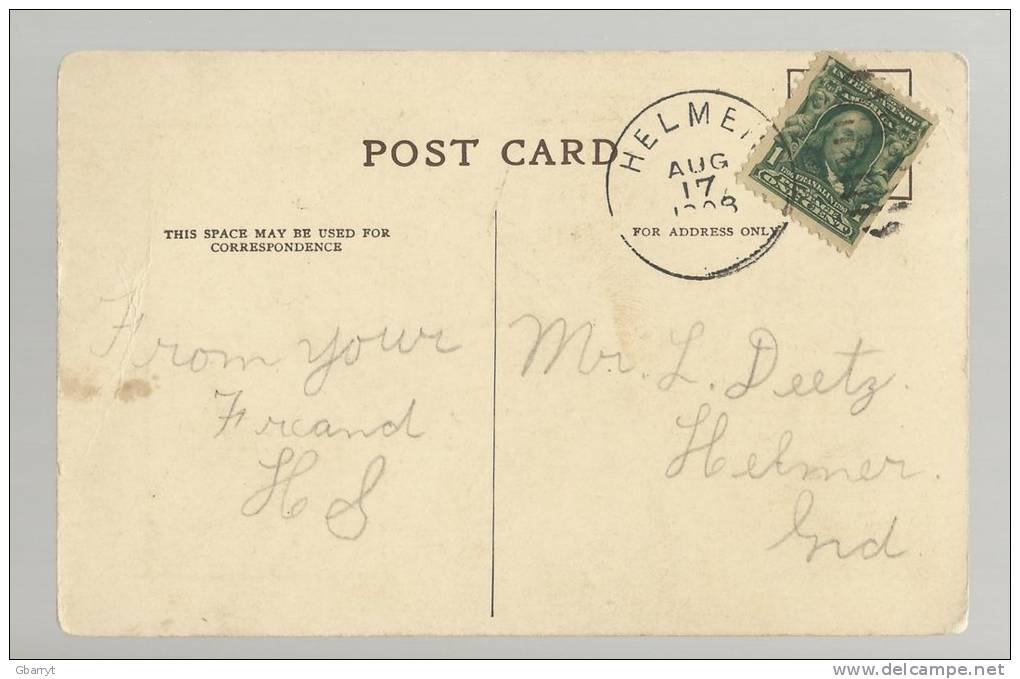 POST CARD
HELMER
AUG
17
1908
UNITED STATES OF
AMERICA
1
FRANKLIN
POSTAGE
ONE CENT
THIS SPACE MAY BE USED FOR
CORRESPONDENCE
FOR ADDRESS ONLY
From your
Freand
H S
Mr. L. Deetz.
Helmer.
Ind.
Gbarryt
www.delcampe.net